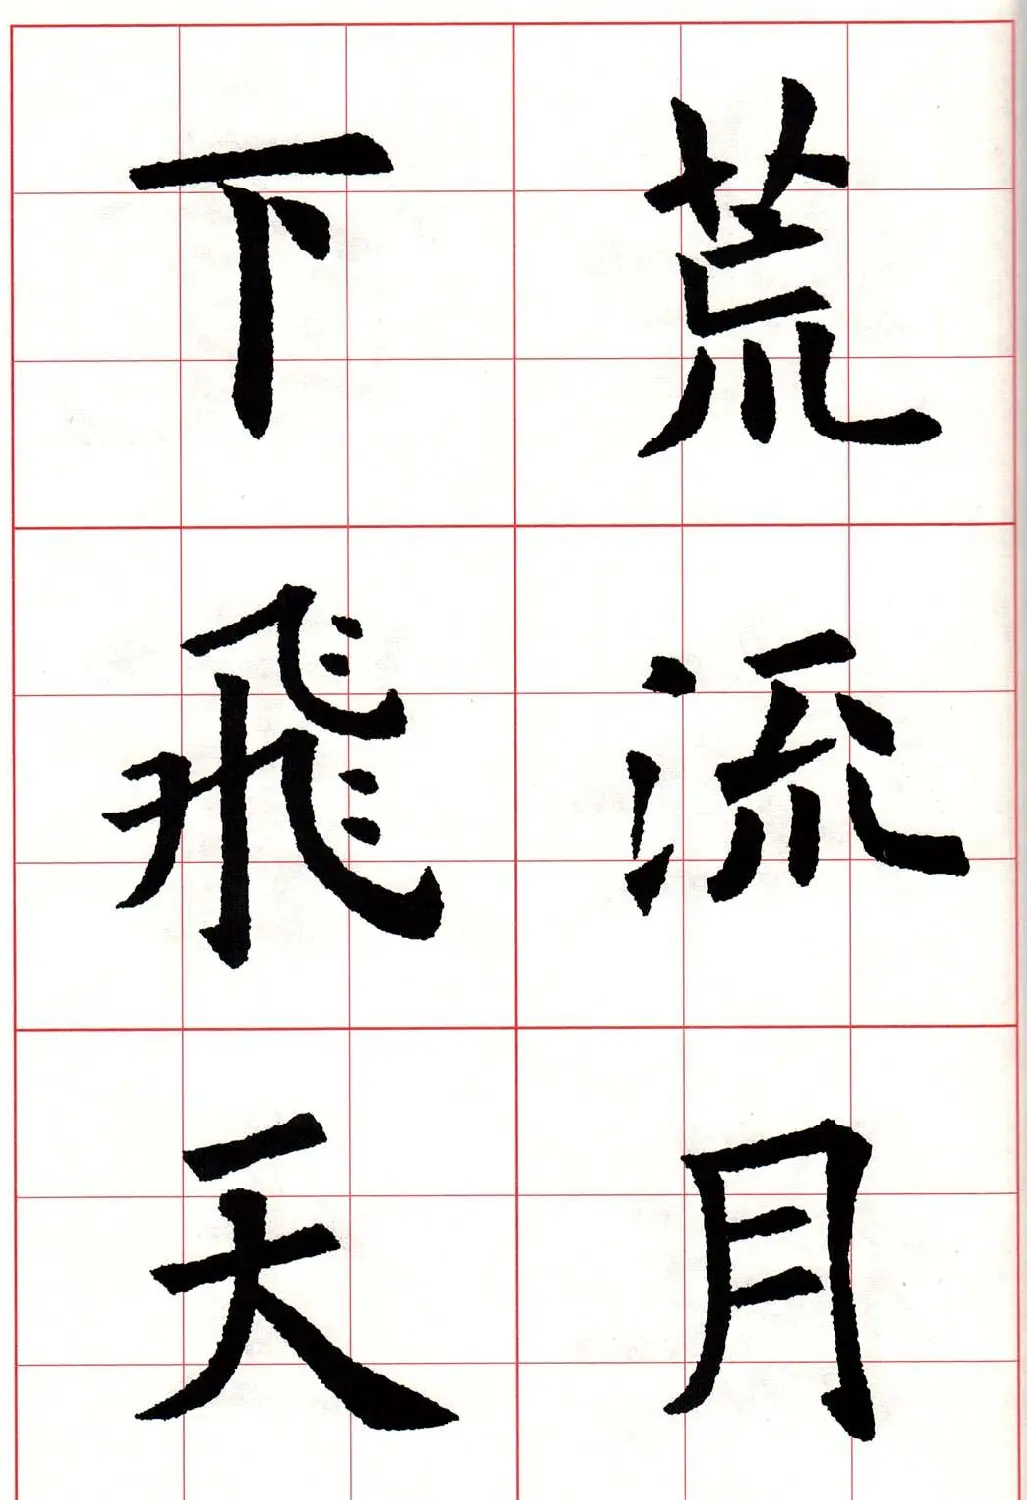 荒流月
下飛天